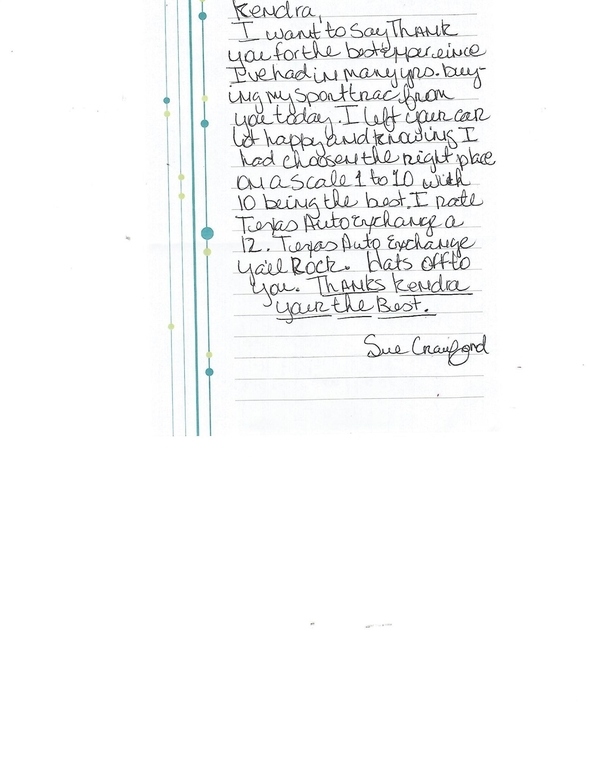 Kendra,
I want to Say Thank
you for the best experience
I've had in many yrs. buy-
ing my Sporttrac from
you today. I left your car
lot happy and knowing I
had choosen the right place
on a scale 1 to 10 with
10 being the best. I rate
Texas Auto Exchange a
12. Texas Auto Exchange
ya'll Rock. Hats off to
you. Thanks Kendra
your the Best.
Sue Crawford